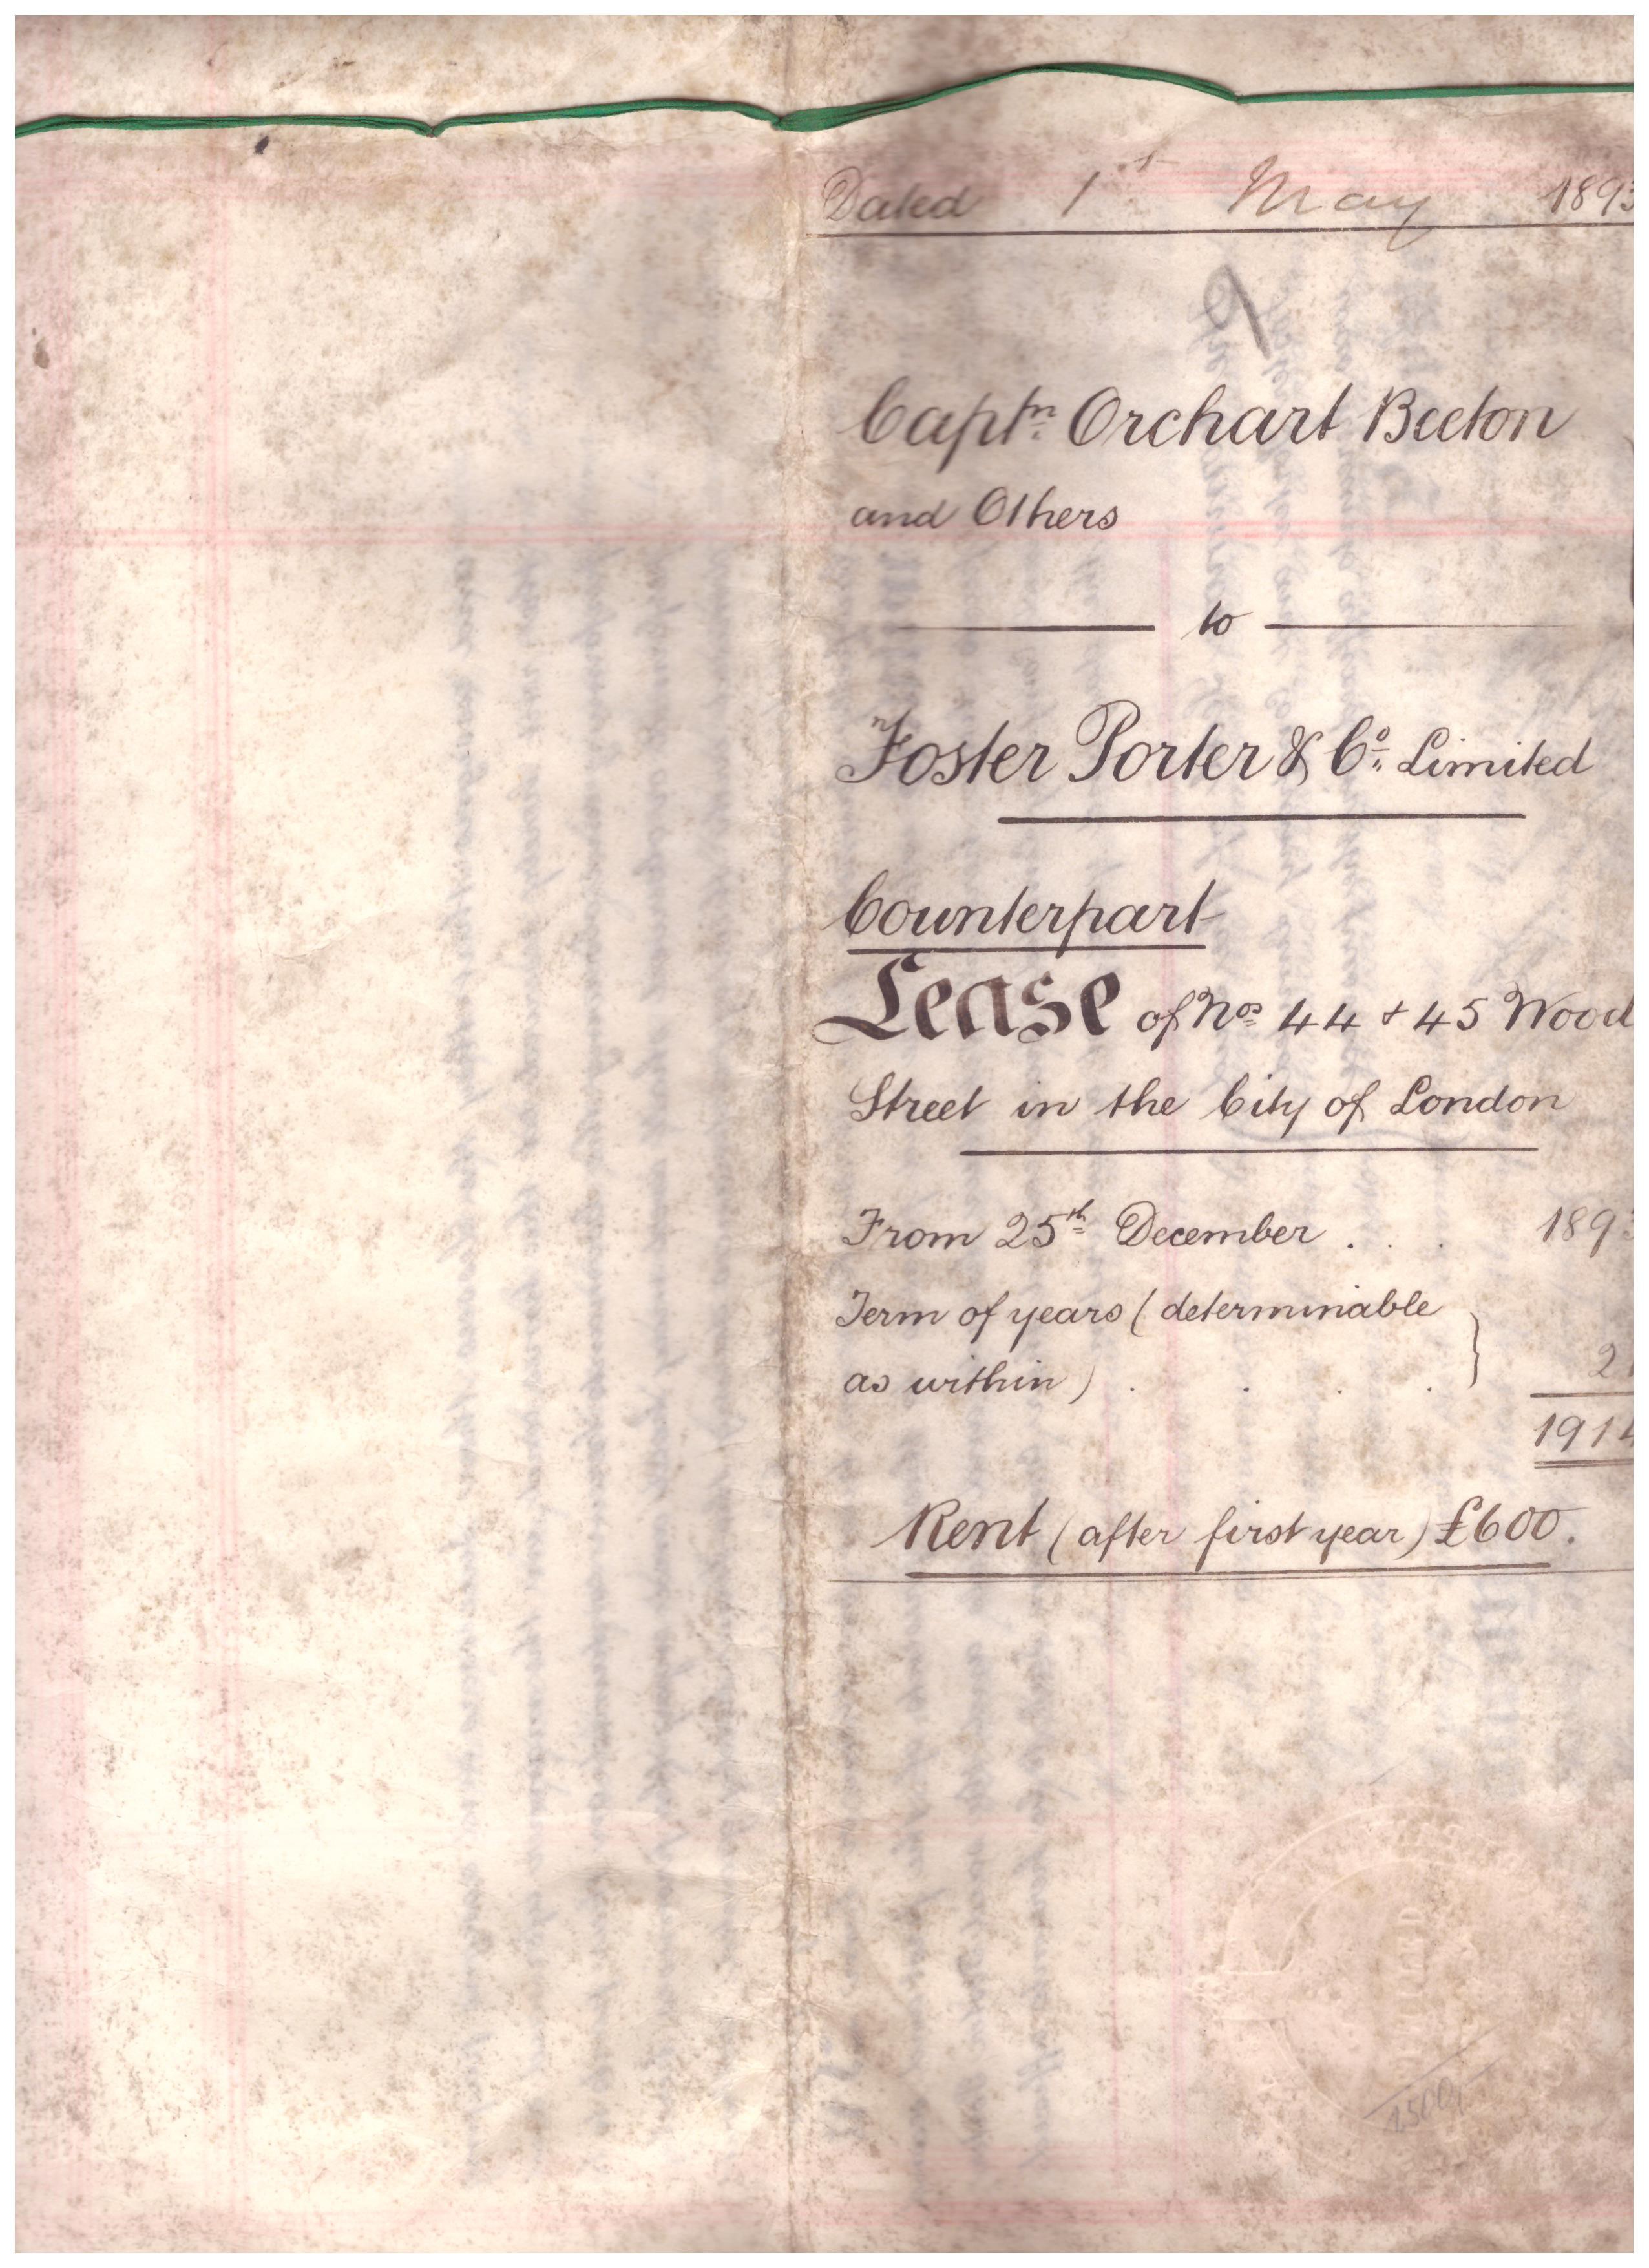 Dated 1st May 1893
Captn. Orchart Beeton
and Others
to
Foster Porter & Co. Limited
Counterpart
Lease of Nos 44 & 45 Wood
Street in the City of London
From 25th December . . . 1893
Term of years (determinable
as within) . . . . } 21
1914
Rent (after first year) £600.